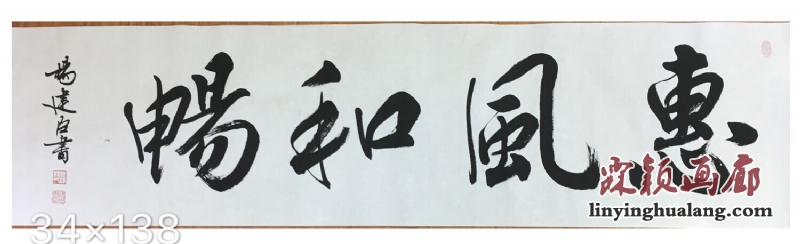 惠風和暢
楊建书
霖颖画廊
linyinghualang.com
34×138